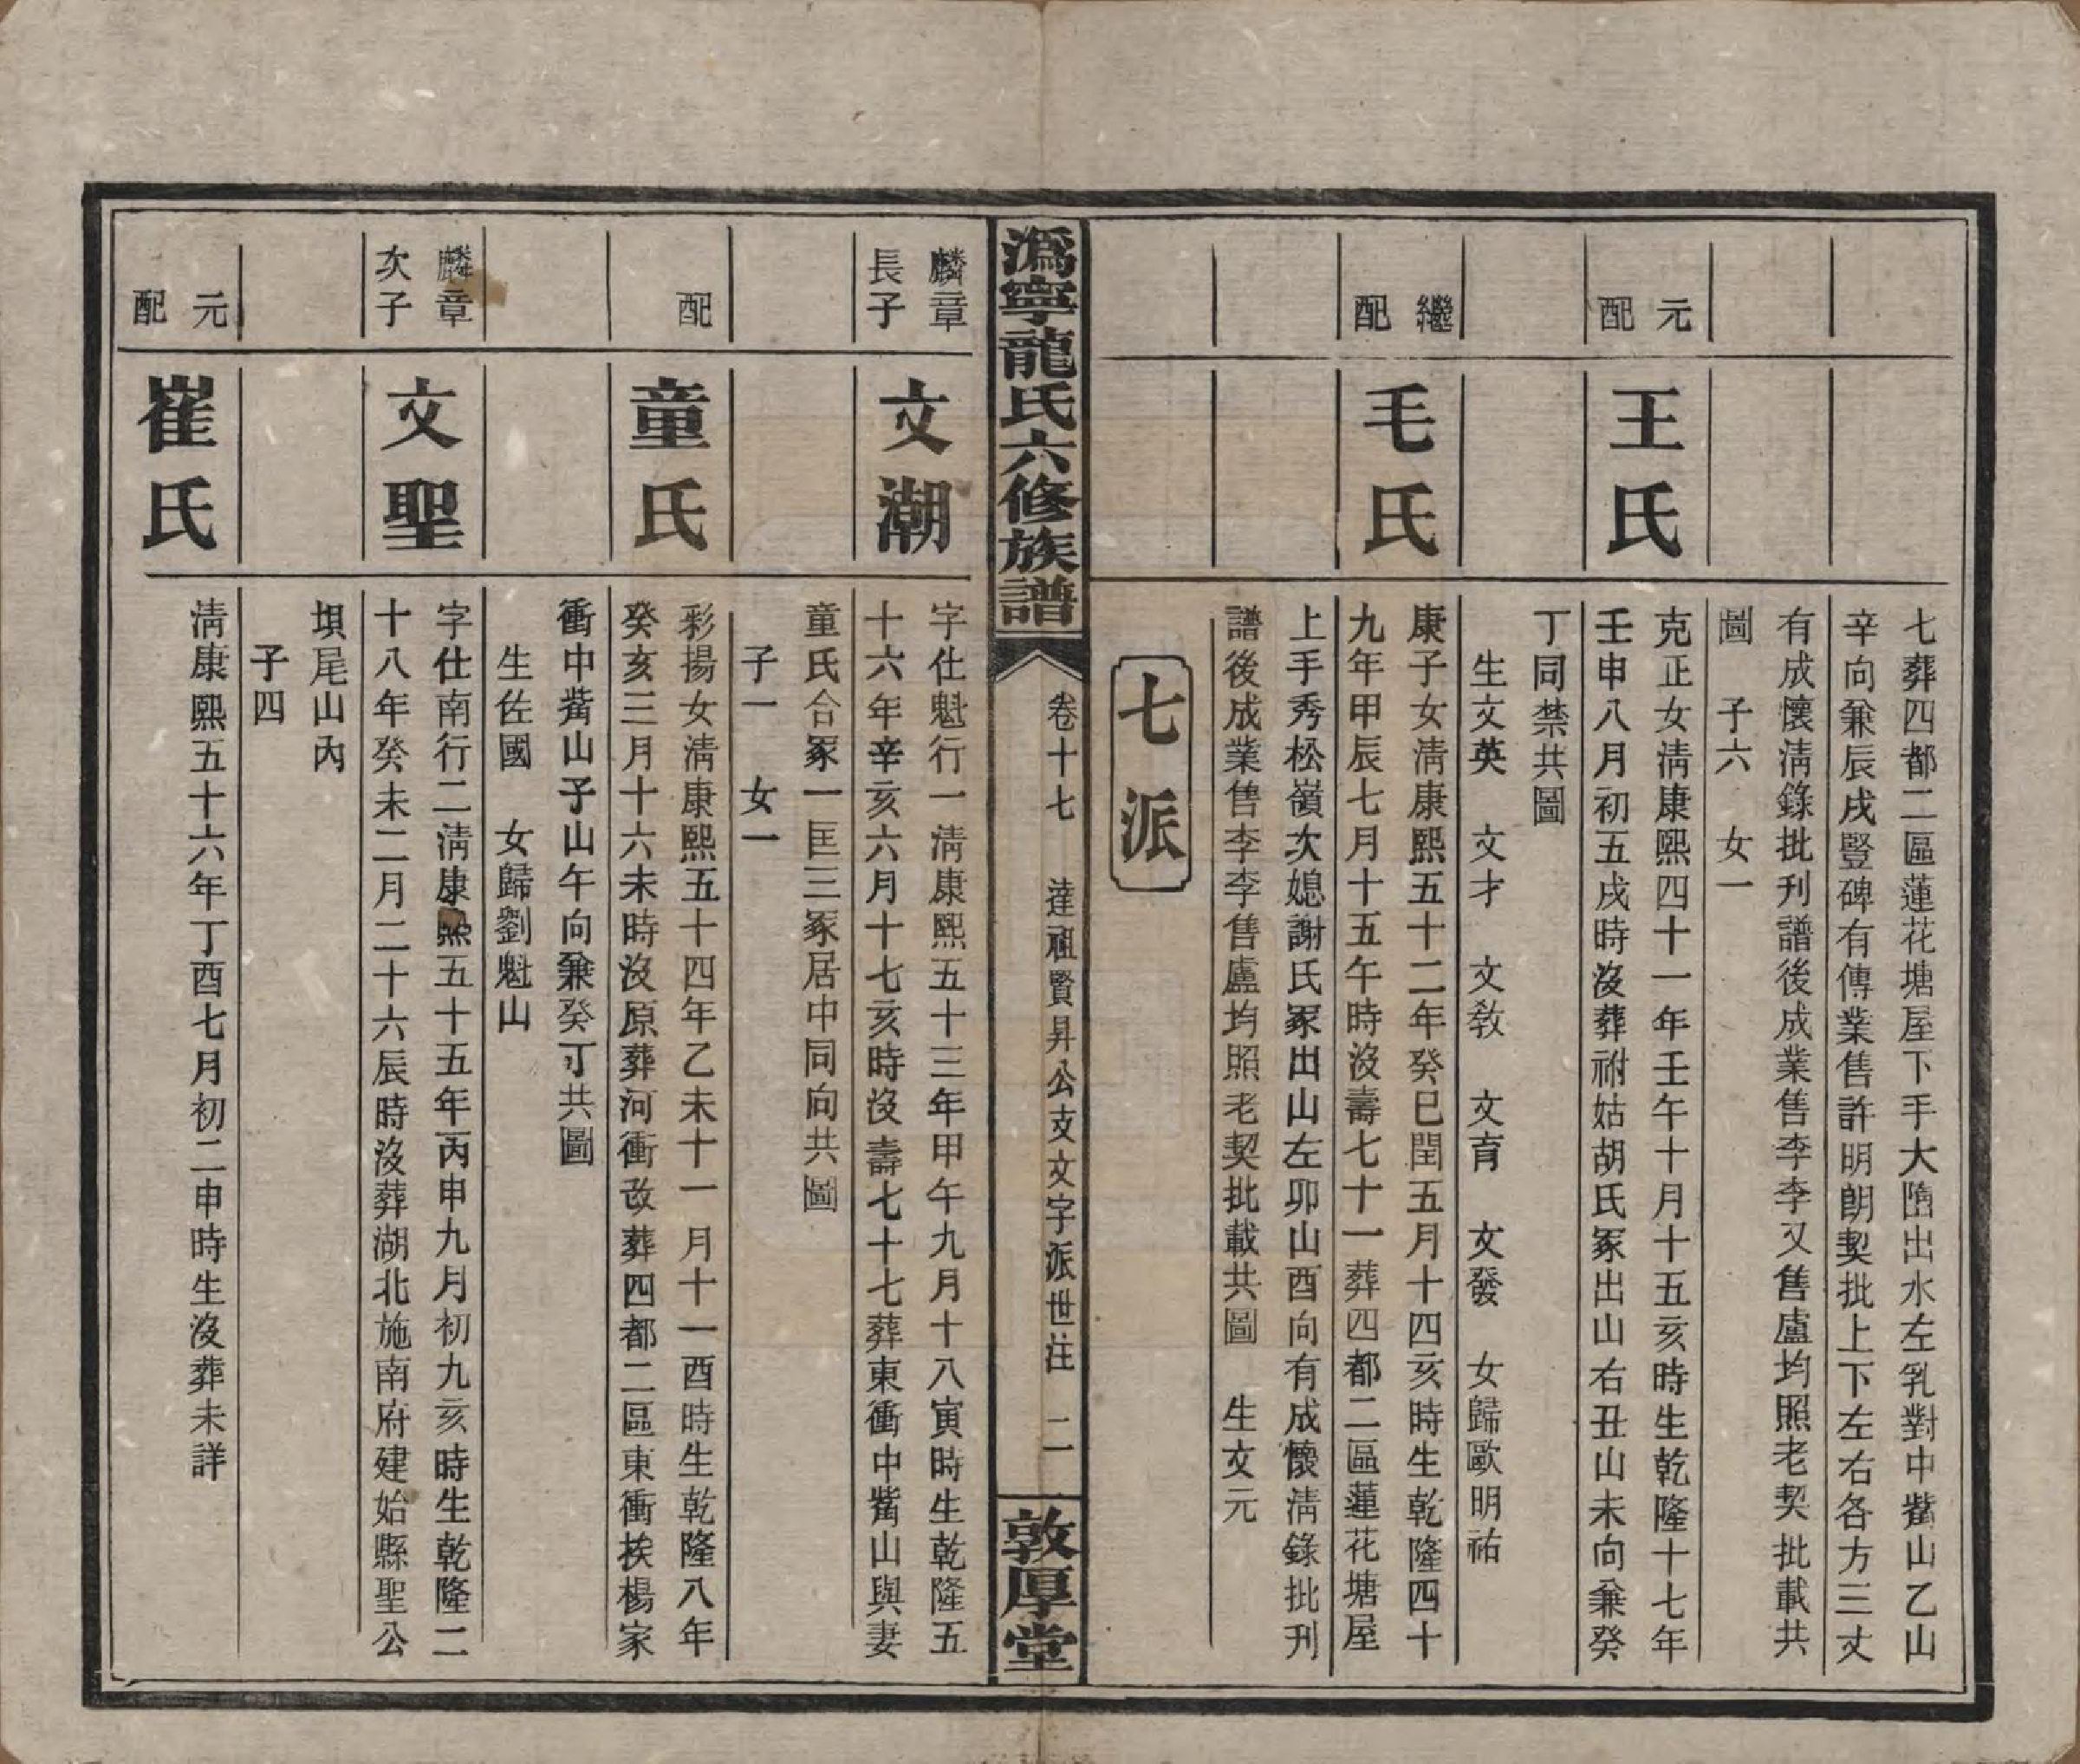 七葬四都二區蓮花塘屋下手大墮出水左乳對中觜山乙山
辛向兼辰戌豎碑有傳業售許明朗契批上下左右各方三丈
有成懷淸錄批刊譜後成業售李李又售盧均照老契批載共
圖　子六　女一
元配
王氏
克正女淸康熙四十一年壬午十月十五亥時生乾隆十七年
壬申八月初五戌時沒葬祔姑胡氏冢出山右丑山未向兼癸
丁同禁共圖
生文英　文才　文敎　文育　文發　女歸歐明祐
繼配
毛氏
康子女淸康熙五十二年癸巳閏五月十四亥時生乾隆四十
九年甲辰七月十五午時沒壽七十一葬四都二區蓮花塘屋
上手秀松嶺次媳謝氏冢出山左卯山酉向有成懷淸錄批刊
譜後成業售李李售盧均照老契批載共圖　生文元
七派
溈寧龍氏六修族譜
卷十七　達祖賢昇公支文字派世注　二
敦厚堂
麟章長子
文潮
字仕魁行一淸康熙五十三年甲午九月十八寅時生乾隆五
十六年辛亥六月十七亥時沒壽七十七葬東衝中觜山與妻
童氏合冢一匡三冢居中同向共圖
子一　女一
配
童氏
彩揚女淸康熙五十四年乙未十一月十一酉時生乾隆八年
癸亥三月十六未時沒原葬河衝改葬四都二區東衝挨楊家
衝中觜山子山午向兼癸丁共圖
生佐國　女歸劉魁山
麟章次子
文聖
字仕南行二淸康熙五十五年丙申九月初九亥時生乾隆二
十八年癸未二月二十六辰時沒葬湖北施南府建始縣聖公
垻尾山內
子四
元配
崔氏
淸康熙五十六年丁酉七月初二申時生沒葬未詳